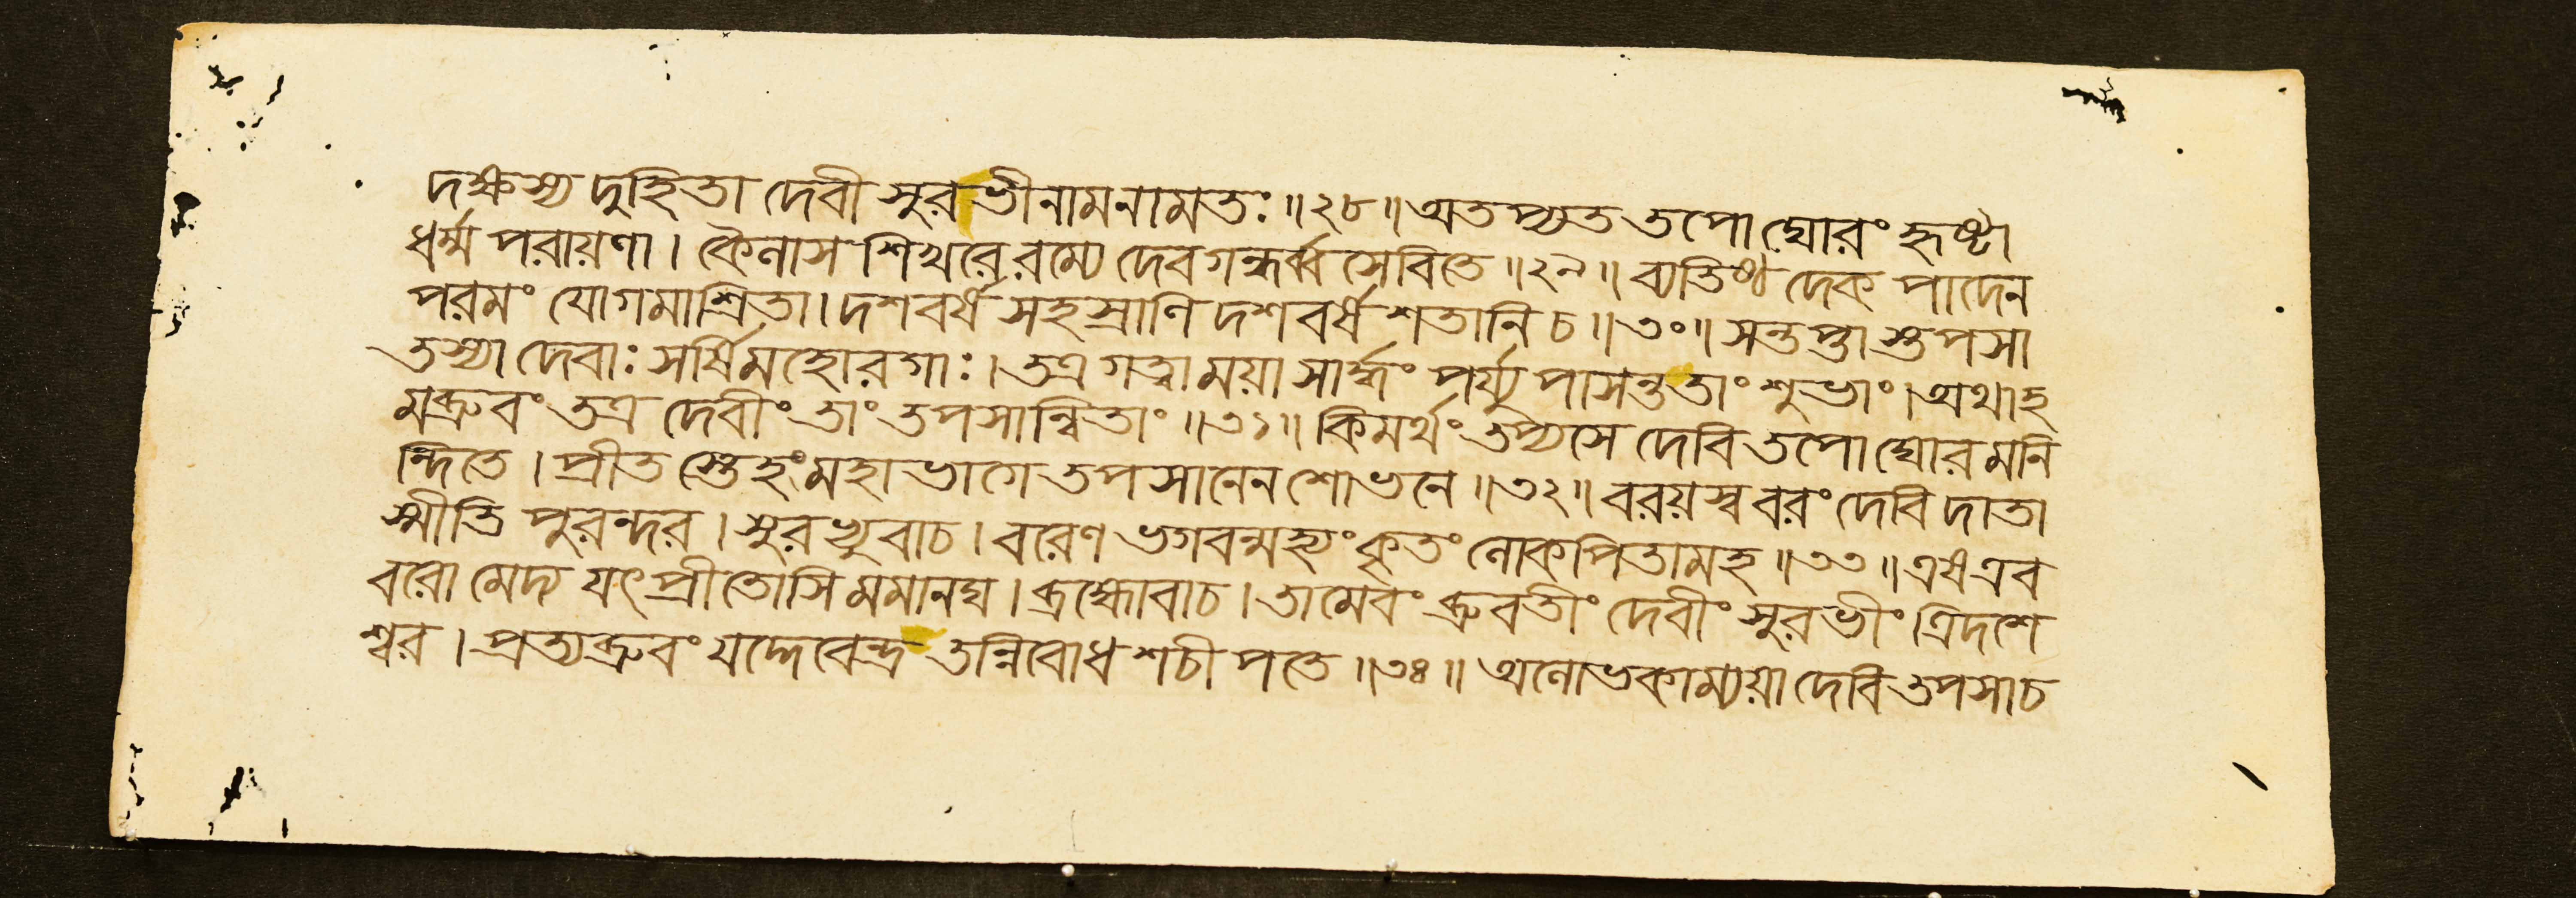 দক্ষস্য দুহিতা দেবী সুরভীনামনামতঃ ॥২৮॥ অতপ্যত তপো ঘোরং হৃষ্টা
ধর্ম্ম পরায়ণা । কৈলাস শিখরে রম্যে দেবগন্ধর্ব্ব সেবিতে ॥২৯॥ ব্যতিষ্ঠ দেক পাদেন
পরমং যোগমাশ্রিতা । দশবর্ষ সহস্রাণি দশবর্ষ শতানি চ ॥৩০॥ সন্তপ্তা স্তপসা
তস্যা দেবাঃ সর্ষিমহোরগাঃ । তত্র গত্বা ময়া সার্দ্ধং পর্য্যুপাসন্ত তাং শুভাং । অথাহ
মব্রুবং তত্র দেবীং তাং তপসান্বিতাং ॥৩১॥ কিমর্থং তপ্যসে দেবি তপো ঘোরমনি
ন্দিতে । প্রীতস্তেহং মহাভাগে তপসানেন শোভনে ॥৩২॥ বরয়স্ব বরং দেবি দাতা
স্মীতি পুরন্দর । সুরভ্যুবাচ । বরেণ ভগবন্মহ্যং কৃতং লোকপিতামহ ॥৩৩॥ এষএব
বরো মেদ্য যৎ প্রীতোসি মমানঘ । ব্রহ্মোবাচ । তামেবং ব্রুবতীং দেবীং সুরভীং ত্রিদশে
শ্বর । প্রত্যব্রুবং যদ্দেবেন্দ্র তন্নিবোধ শচীপতে ॥৩৪॥ অলোভকাম্যয়া দেবি তপসা চ